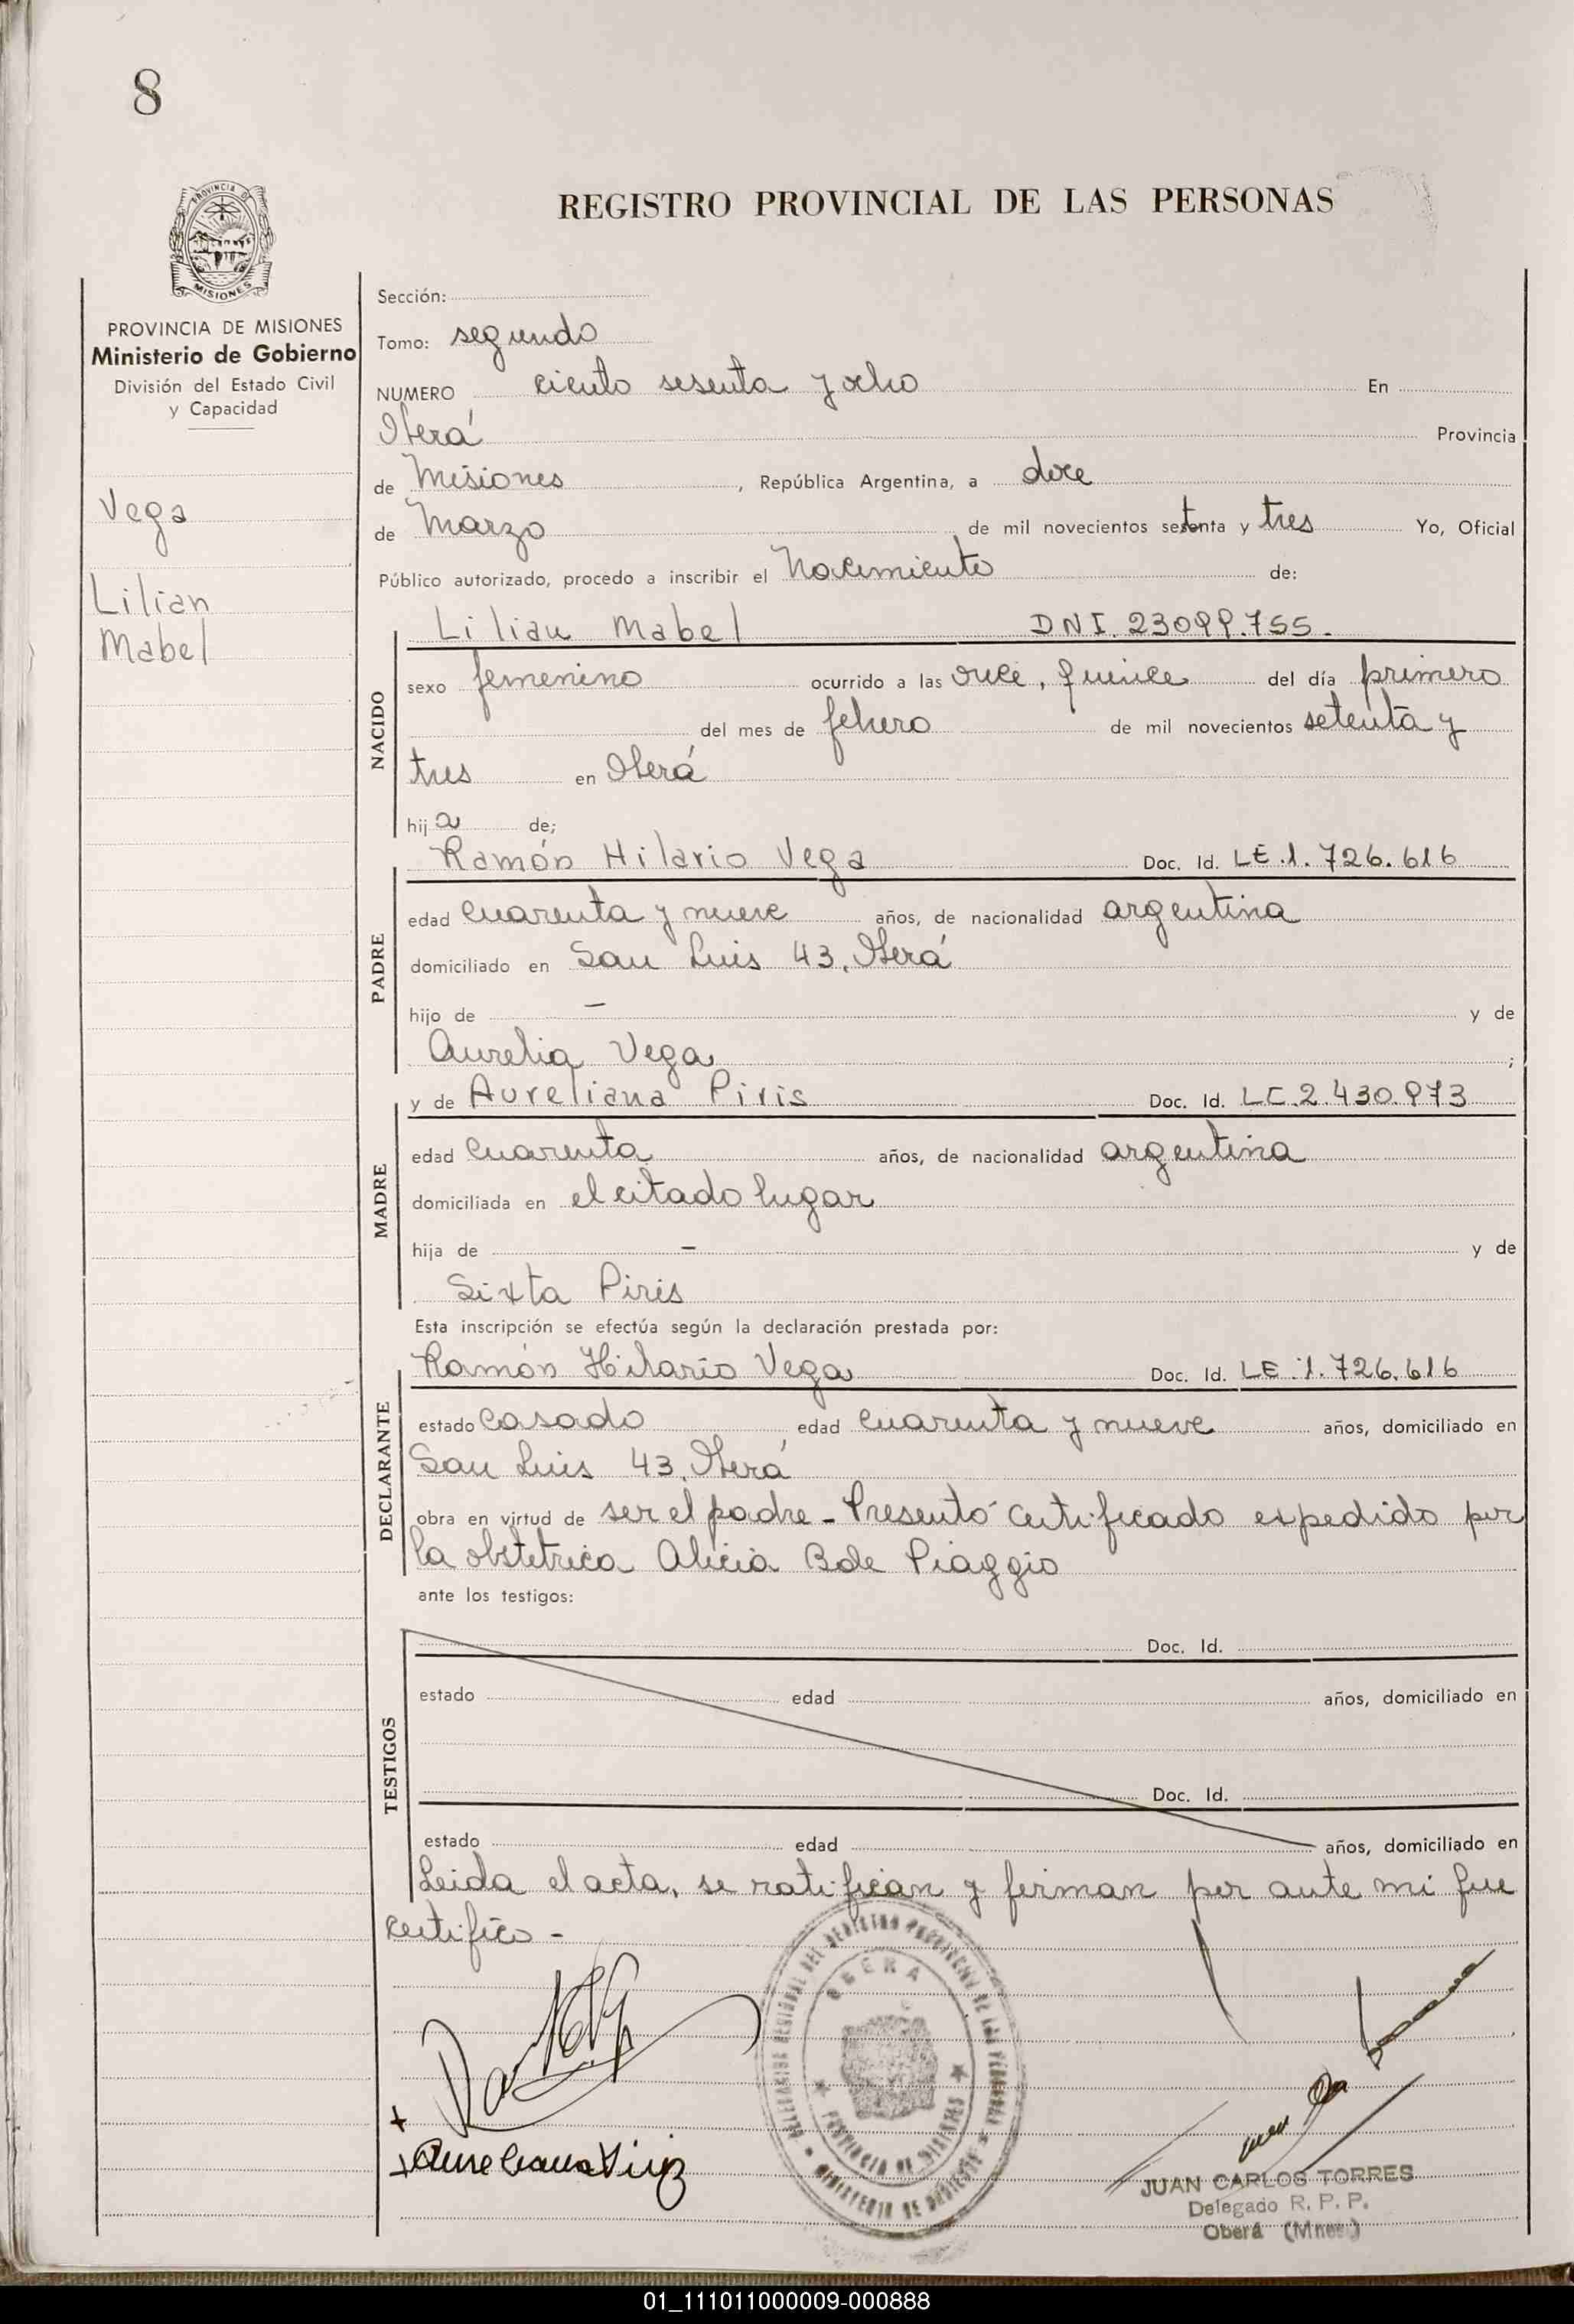 8
REGISTRO PROVINCIAL DE LAS PERSONAS
PROVINCIA DE
MISIONES
PROVINCIA DE MISIONES
Ministerio de Gobierno
División del Estado Civil
y Capacidad
Vega
Lilian
Mabel
Sección:
Tomo: segundo
NUMERO ciento sesenta y ocho En
Oberá Provincia
de Misiones, República Argentina, a doce
de Marzo de mil novecientos setenta y tres Yo, Oficial
Público autorizado, procedo a inscribir el Nacimiento de:
NACIDO
Lilian Mabel DNI. 23099.755.
sexo femenino ocurrido a las once, quince del día primero
del mes de febrero de mil novecientos setenta y
tres en Oberá
hija de;
PADRE
Ramón Hilario Vega Doc. Id. LE.1.726.616
edad cuarenta y nueve años, de nacionalidad argentina
domiciliado en San Luis 43, Oberá
hijo de — y de
Aurelia Vega ;
MADRE
y de Aureliana Piris Doc. Id. LC.2.430.973
edad cuarenta años, de nacionalidad argentina
domiciliada en el citado lugar
hija de — y de
Sixta Piris
Esta inscripción se efectúa según la declaración prestada por:
DECLARANTE
Ramón Hilario Vega Doc. Id. LE.1.726.616
estado casado edad cuarenta y nueve años, domiciliado en
San Luis 43, Oberá
obra en virtud de ser el padre - Presentó certificado expedido por
la obstetrica Alicia B de Piaggio
ante los testigos:
TESTIGOS
Doc. Id.
estado edad años, domiciliado en
Doc. Id.
estado edad años, domiciliado en
Leida el acta, se ratifican y firman por ante mi que
certifico -
DELEGACION REGIONAL DEL REGISTRO PROVINCIAL DE LAS PERSONAS
OBERA
PROVINCIA DE MISIONES
MINISTERIO DE GOBIERNO
JUAN CARLOS TORRES
Delegado R. P. P.
Oberá (Mnes)
01_111011000009-000888